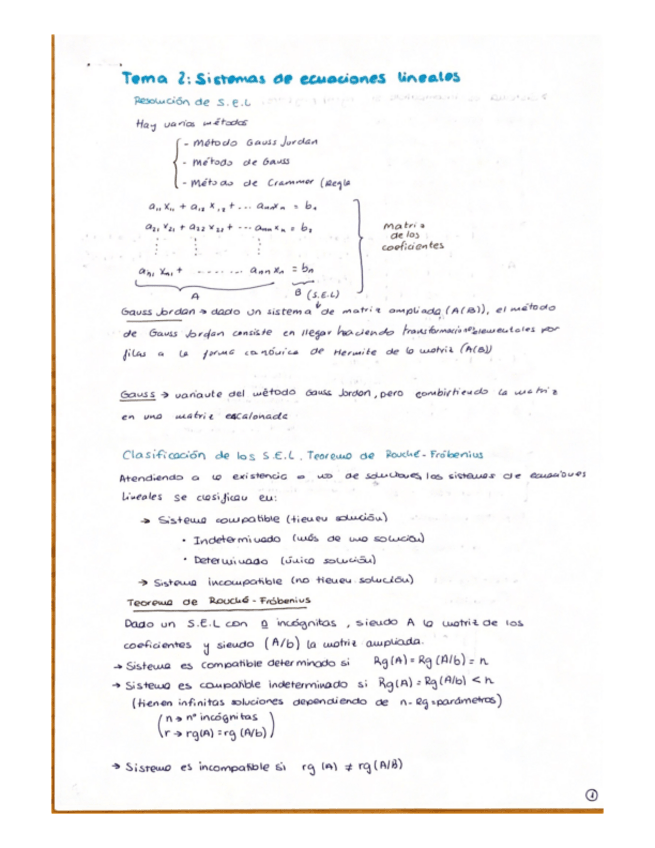 Tema 2: Sistemas de ecuaciones lineales
Resolución de S.e.L
Hay varios métodos
- Método Gauss Jordan
- Método de Gauss
- Método de Crammer (Regla
a₁₁ x₁₁ + a₁₂ x₁₂ + ... aₙₙxₙ = b₁
a₂₁ x₂₁ + a₂₂ x₂₂ + ... aₙₙxₙ = b₂
aₙ₁ xₙ₁ + ........ aₙₙxₙ = bₙ
matriz
de los
coeficientes
A B (S.E.L)
Gauss Jordan → dado un sistema de matriz ampliada (A(B)), el método
de Gauss Jordan consiste en llegar haciendo transformaciones elementales por
filas a la forma canónica de Hermite de la matriz (A(B))
Gauss → variante del método Gauss Jordan, pero combirtiendo la matriz
en una matriz escalonada
Clasificación de los S.E.L. Teorema de Rouché-Fröbenius
Atendiendo a la existencia o no de soluciones, los sistemas de ecuaciones
lineales se clasifican en:
→ Sistema compatible (tienen solución)
• Indeterminado (más de una solución)
• Determinado (única solución)
→ Sistema incompatible (no tienen solución)
Teorema de Rouché-Fröbenius
Dado un S.E.L con n incógnitas, siendo A la matriz de los
coeficientes y siendo (A/b) la matriz ampliada.
→ Sistema es compatible determinado si Rg(A) = Rg(A/b) = n
→ Sistema es compatible indeterminado si Rg(A) = Rg(A/b) < n
(tienen infinitas soluciones dependiendo de n-Rg=parámetros)
(n → nº incógnitas
r → rg(A) = rg(A/b))
→ Sistema es incompatible si rg (A) ≠ rg(A/B)
1